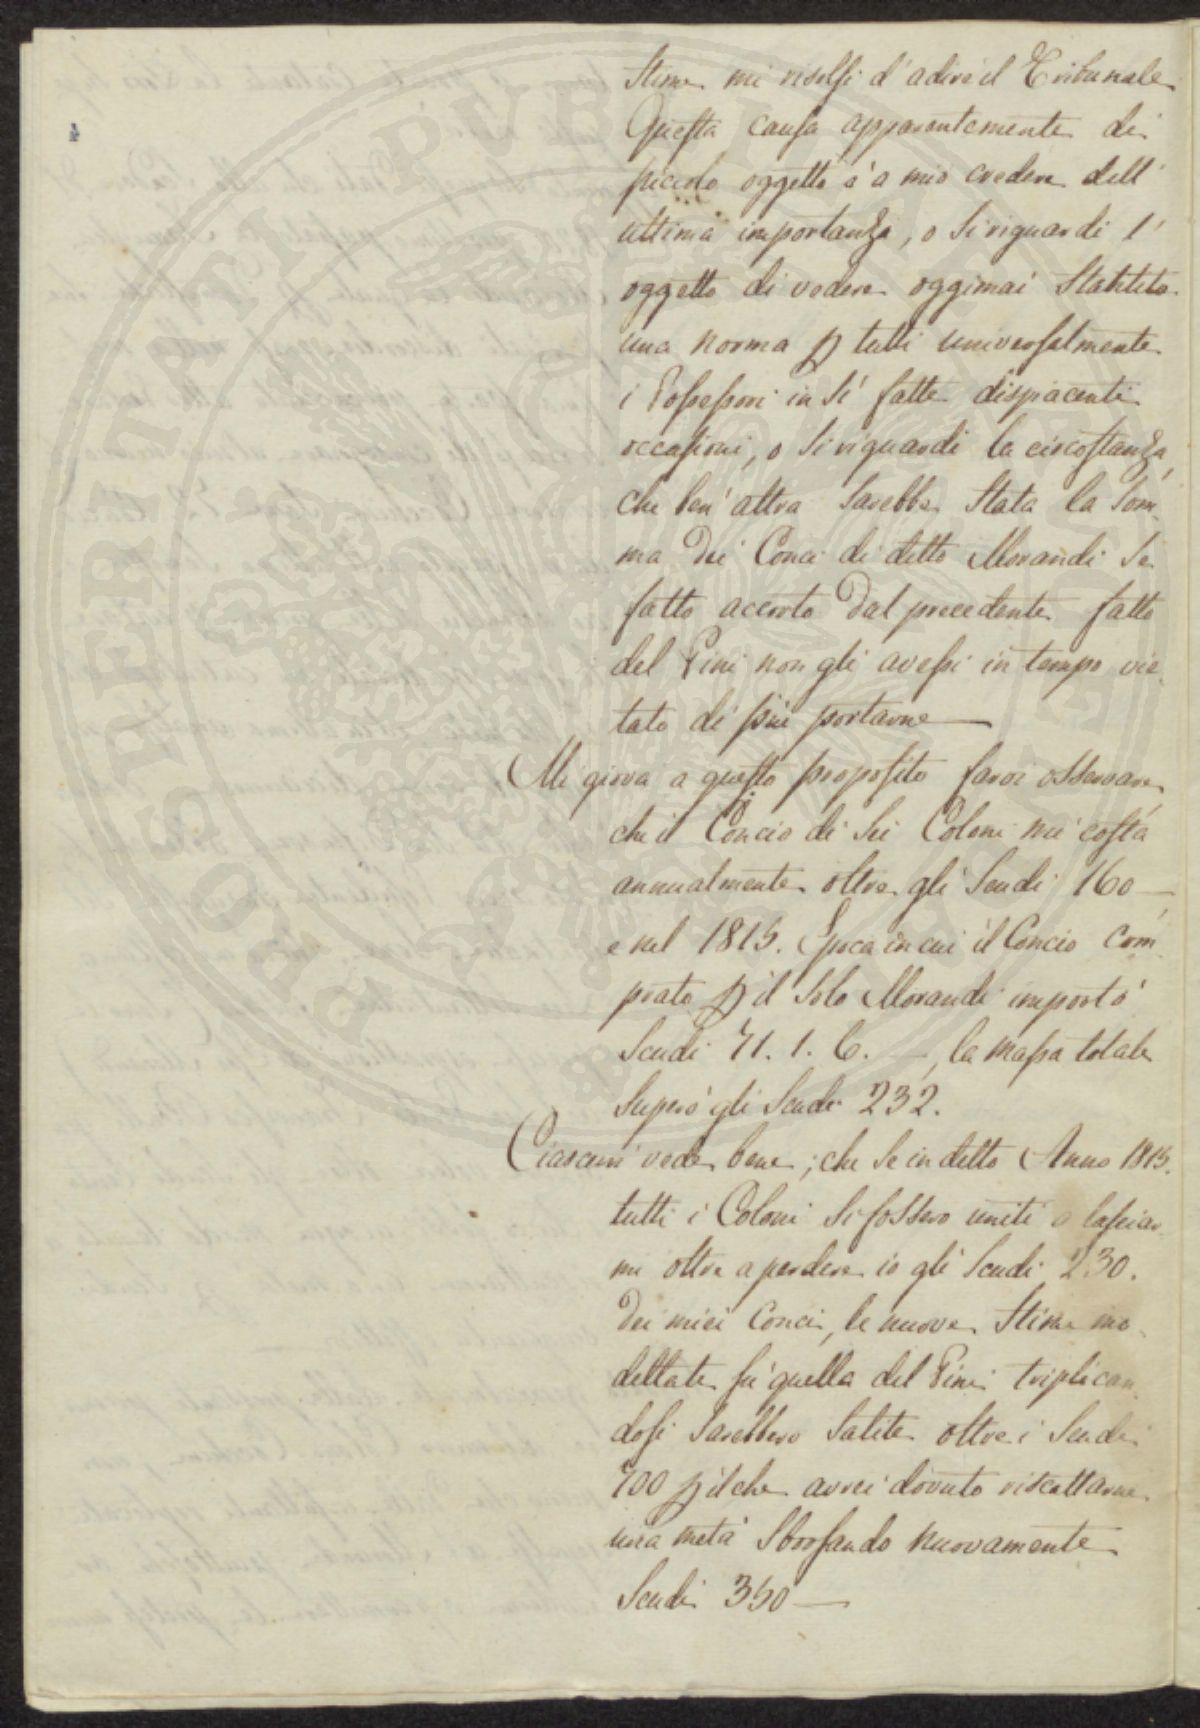 Stime mi risolsi d'adire il Tribunale
Questa causa apparentemente di
piccolo oggetto è a mio credere dell'
ultima importanza, o si riguardi l'
oggetto di vedere oggimai Stabilito
una norma p tutti universalmente
i Possessori in Sì fatte dispiacenti
occasioni, o Si riguardi la circostanza,
che ben' altra Sarebbe Stata la Som-
ma dei Conci di detto Morandi Se
fatto accorto Dal precedente fatto
del Pini non gli avessi in tempo vie-
tato di più portarne —
Mi giova a questo proposito farvi osservare,
che il Concio di Sei Coloni mi costa
annualmente oltre gli Scudi 160 —,
e nel 1815. Epoca in cui il Concio Com-
prato p il Solo Morandi importò
Scudi 71. 1. 6. —, la massa totale
Superò gli Scudi 232.
Ciascun vede bene, che Se in detto Anno 1815.
tutti i Coloni Si fossero uniti a lasciar-
mi oltre a perdere io gli Scudi 230.
Dei miei Conci, le nuove Stime mo-
dellate Su quella del Pini triplican-
dosi Sarebbero Salite oltre i Scudi
700 p il che avrei dovuto riscattarne
una metà Sborsando nuovamente
Scudi 350 —
PROSPERITATI PUBLICAE